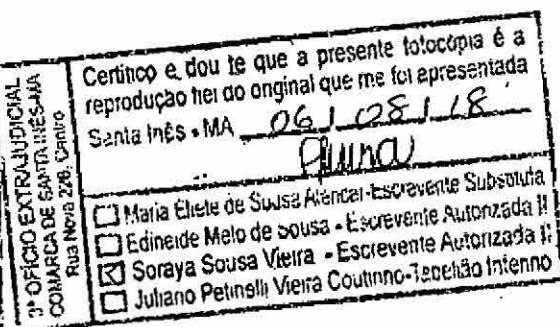 3º OFÍCIO EXTRAJUDICIAL
COMARCA DE SANTA INÊS-MA
Rua Nova 226, Centro
Certifico e dou fe que a presente fotocópia é a
reprodução fiel do original que me foi apresentada
Santa Inês - MA 06/08/18
Maria Eliete de Sousa Alencar-Escrevente Substituta
Edineide Melo de Sousa - Escrevente Autorizada II
Soraya Sousa Vieira - Escrevente Autorizada II
Juliano Petinelli Vieira Coutinho-Tabelião Interino